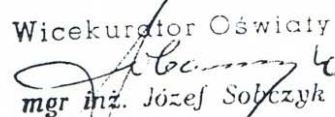 Wicekurator Oświaty
mgr inż. Józef Sobczyk